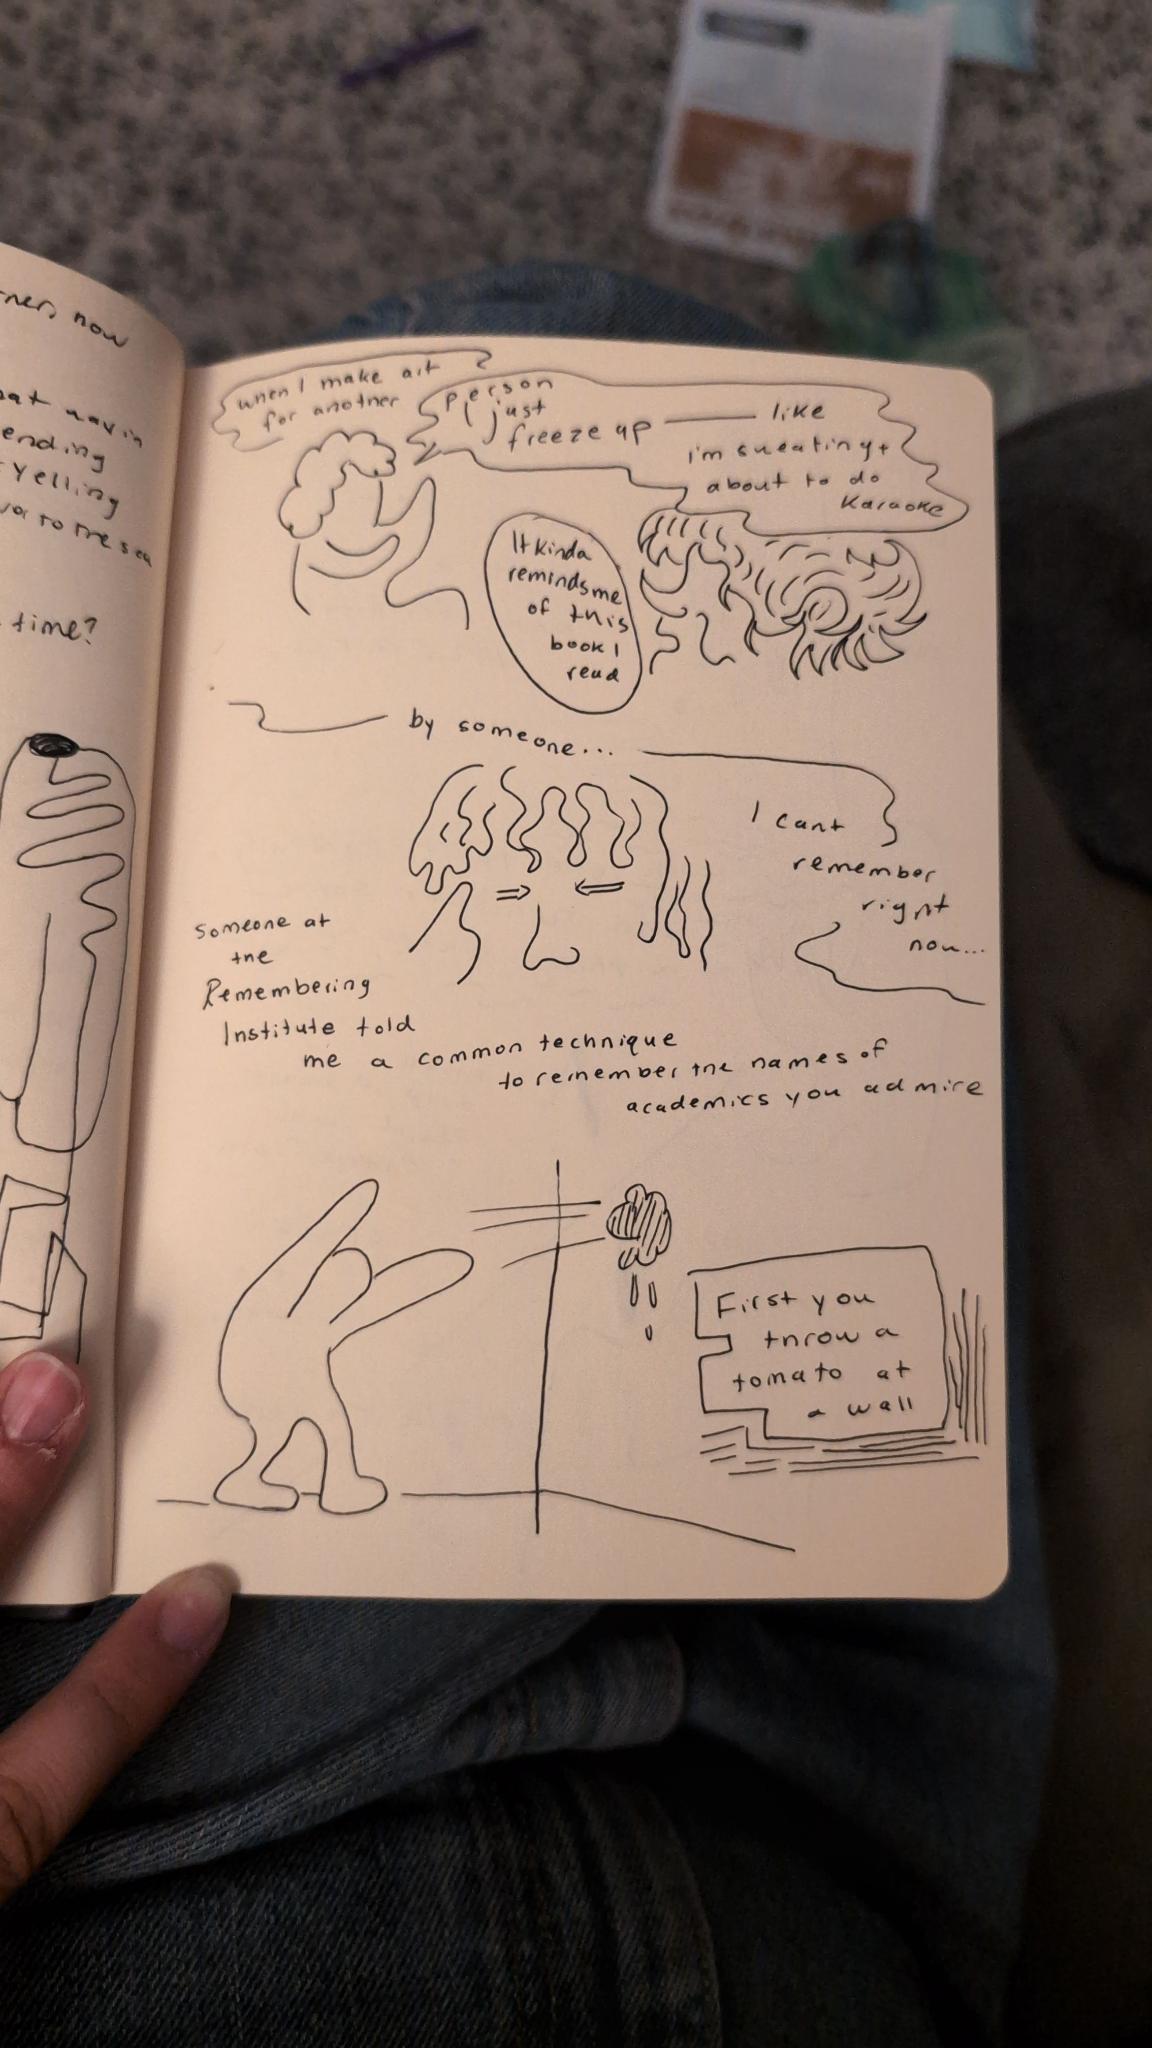 now
ending
Yelling
time?
when I make art
for another
person
I just
freeze up — like
i'm sweating +
about to do
Karaoke
It kinda
reminds me
of this
book I
read
by someone...
I cant
remember
right
now...
someone at
the
Remembering
Institute told
me a common technique
to remember the names of
academics you admire
First you
throw a
tomato at
a wall